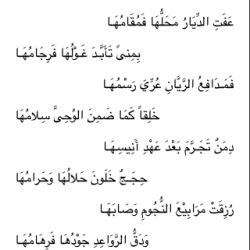 عَفَتِ الدِّيَارُ مَحَلُّهَا فَمُقَامُهَا
بِمِنىً تَأَبَّدَ غَوْلُهَا فَرِجَامُهَا
فَمَدَافِعُ الرَّيَّانِ عُرِّيَ رَسْمُهَا
خَلَقاً كَمَا ضَمِنَ الوُحِيَّ سِلامُهَا
دِمَنٌ تَجَرَّمَ بَعْدَ عَهْدِ أَنِيسِهَا
حِجَجٌ خَلَوْنَ حَلالُهَا وَحَرامُهَا
رُزِقَتْ مَرَابِيعَ النُّجُومِ وَصَابَهَا
وَدْقُ الرَّوَاعِدِ جَوْدُهَا فَرِهَامُهَا